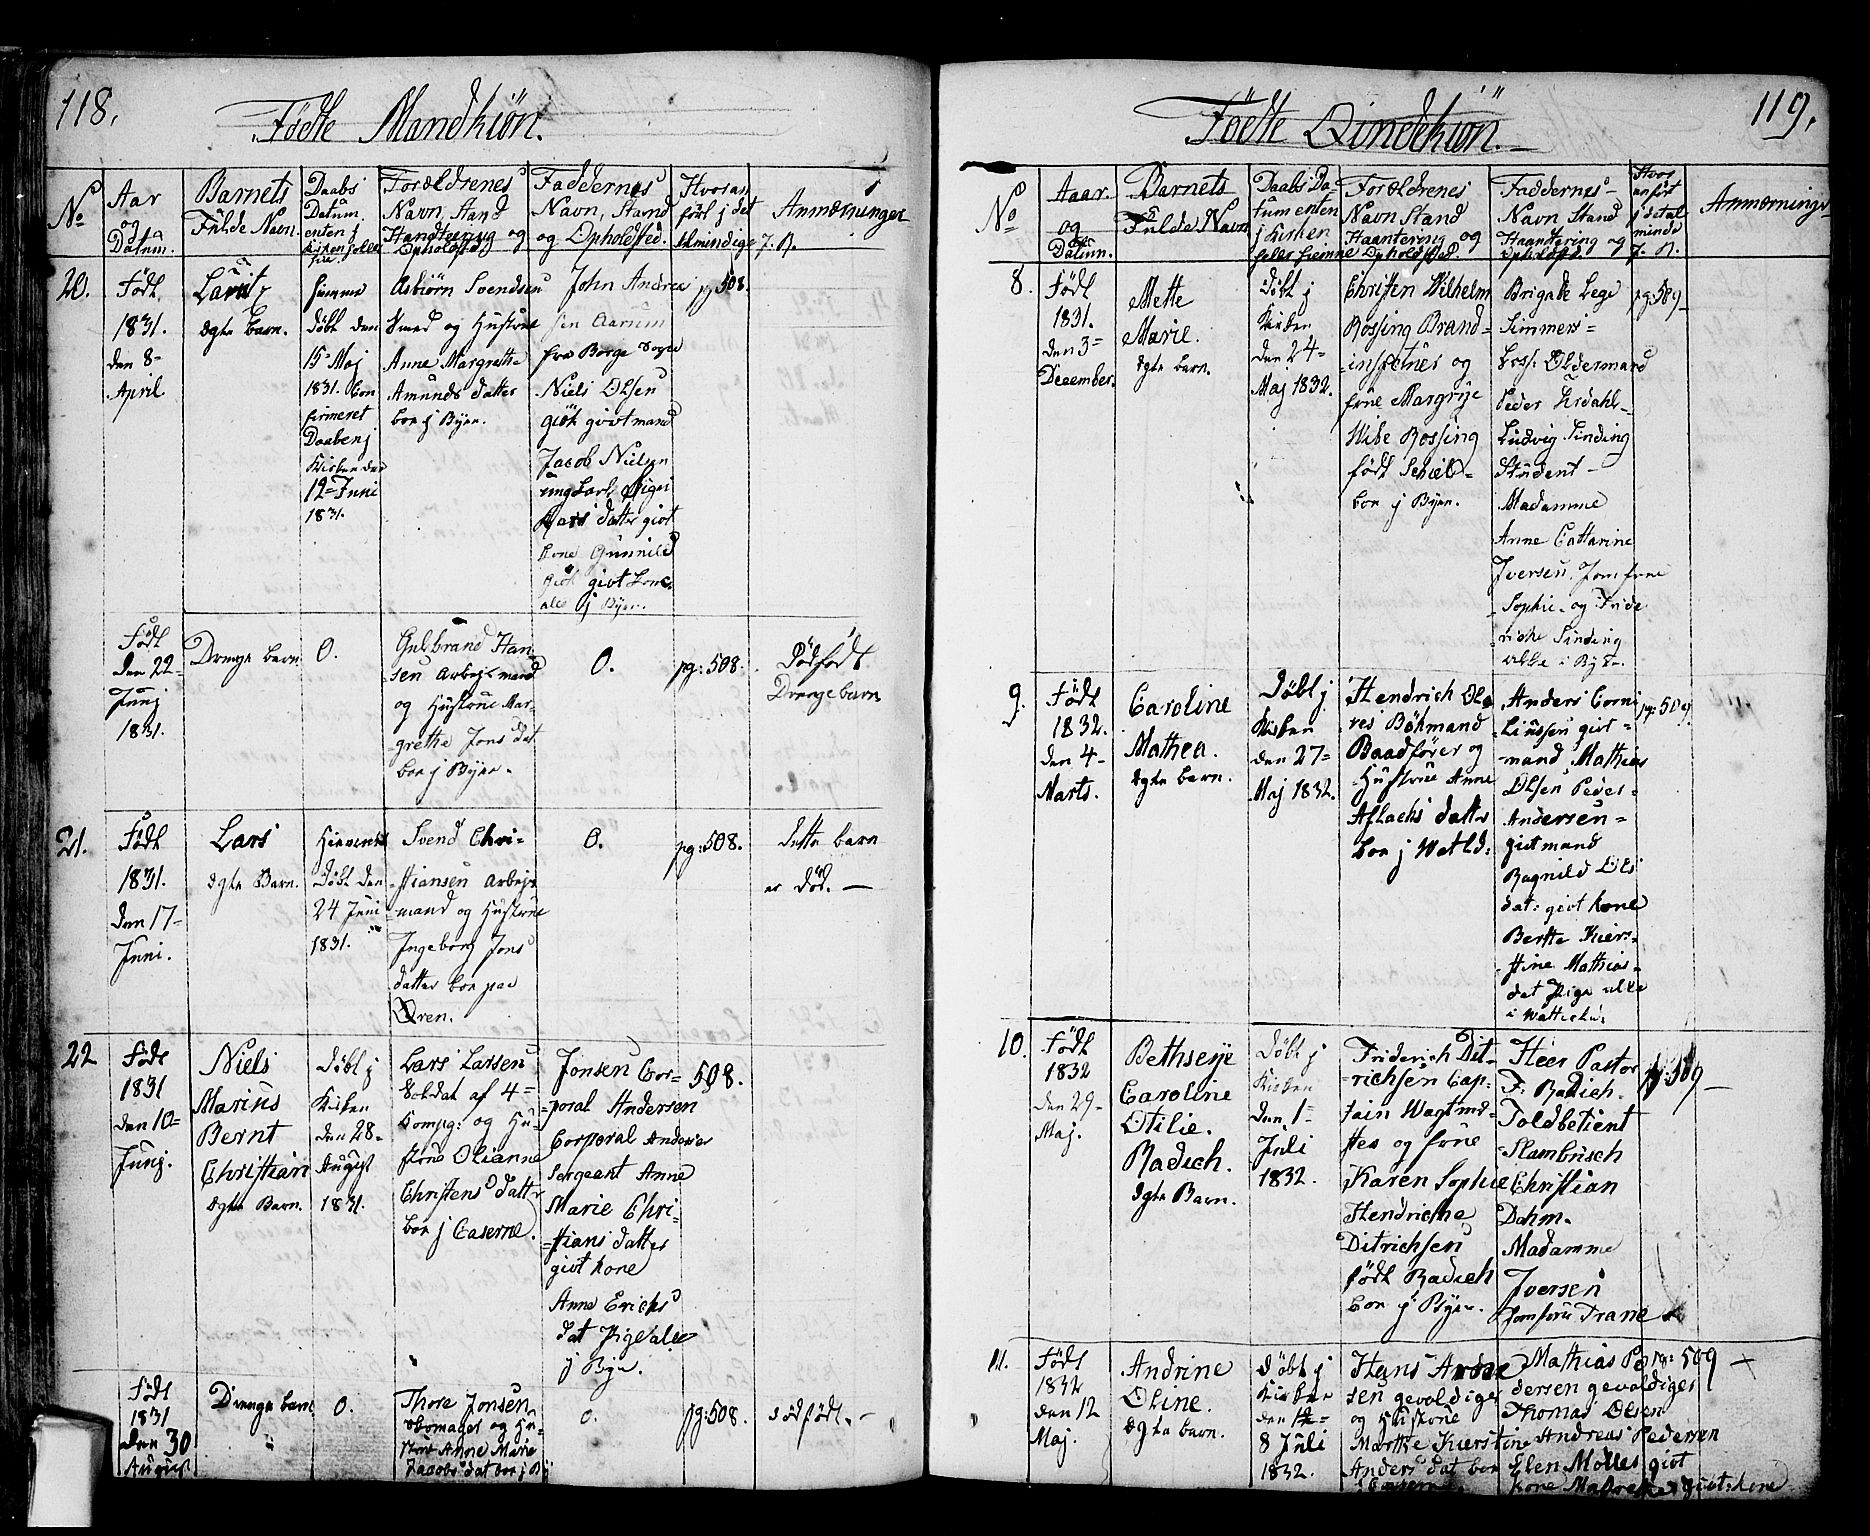 118.
Födte Mandkiön.
No
Aar
og
Datum.
Barnets
Fülde Navn.
Daabs
Datum
enten j
Kirken heller
Forældrenes
Navn, Stand
Handtering og
Opholdsted
Faddernes
Navn, Stand
og Opholdsted.
Hvoran
fört j det
almindige J. R.
Anmærninger
20.
Födt
1831.
den 8-
April
Lauritz
ægte barn.
hiemme
döbt den
15- Maj
1831. Con
firmeret
Daaben j
Kirken den
12= Juni
1831.
Asbiörn Svendsen
Smed og Hustrue
Anne Margrethe
Amunds datter
boe j Byen.
John Andrea
sen Aarum
fra Borge Sogn
Niels Olsen
giöt givt mand
Jacob Nielsen
ungkarl
Lars datter givt
kone Gunnild
giöt givt kone
alle j Byen.
pg 508.
Födt
den 22-
Junj
1831.
Drenge barn
0.
Gulbrand Han
sen Arbejdsmand
og Hustrue Mar-
grethe Jons dat
boe j Byen.
0.
pg: 508.
Dödfödt
Drengebarn
21.
Födt
1831.
den 17-
Juni.
Lars
ægte Barn.
Hiemme
döbt den
24 Juni
1831.
Svend Chri-
stiansen Arbejds
mand og Hustrue
Ingeborg Jons
datter boe paa
Ören.
0.
pg: 508.
dette barn
er död. —
22
Födt
1831
den 10=
Junj.
Niels
Marius
Bernt
Christian
ægte Barn.
Döbt j
Kirken
den 28-
August
1831.
Lars Larsen
Soldat af 4=
Kompg: og Hu-
strue Olianne
Christens datter
boe j Caserne.
Jonsen Cor-
poral Andersen
Corporal Andersen
Sergeant Anne
Marie Chri-
stians datter
givt kone
Anne Erichs
dat Pige alle
j Byen.
508.
Födt
1831
den 30
August
Drenge barn
0.
Thore Jonsen
Skomager og Hu-
strue Anne Marie
Jacobs dat boe j By
0.
pg: 508.
dödfödt. -
119.
Födte Qindekiön.
No
Aaar.
og
Datum.
Barnets
Fulde Navn
Daabs Da-
tum enten
j Kirken
heller hiemme
Forældrenes
Navn Stand
Haantering og
Opholdsted.
Faddernes
Navn Stand
Haandtering og
Opholdsted.
Hvor
anfört
j det al
minde
J. R.
Anmærninger
8.
Födt
1831.
den 3=
December.
Mette
Marie.
ægte barn.
Döbt j
Kirken
den 24=
Maj 1832.
Christen Wilhelm
Rossing Brand=
inspeteur og
frue Margreje
Wibe Rossing
födt Schiel-
boe j Byen.
Brigade Lege
Simmers=
Loss: Oldermand
Peder Urdahl-
Ludvig Sinding
Student -
Madamme
Anne Cattarine
Iversen. Jomfrue
Sophie og Fride
riche Sinding
alle i Byen.
pg: 509-
9.
Födt
1832.
den 4-
Marts.
Caroline
Mathea.
ægte barn.
Döbt j
Kirken
den 27=
Maj 1832.
Hendrich Ole
res Bökmand
Baadförer og
Hustrue Anne
Aslachs datter
boe j Watld:
Anders Corni
liussen givt=
mand Mathias
Olsen Peder-
Andersen=
givt mand
Ragnild Ols
dat: givt kone
Berthe Kiers-
stine Mathias-
dat Pige alle
pg: 509.
10.
Födt
1832
den 29-
Maj.
Bethseije
Caroline
Otilie.
Radich.
ægte Barn.
Döbt j
Kirken
den 1=
Juli
1832.
Friderich Dit-
richsen Cap-
tain Wagtmd-
ster og frue
Karen Sophie
Hendriche
Ditrichsen
födt Radich
boe j Byen.
Heer Pastor
F: Radich.
Toldbetient
Stambusch
Christian
Dahm.
Madamme
Iversen
Jomfrue Trane
pg: 509 -
11.
Födt
1832
den 12
Maj.
Andrine
Oline.
ægte barn.
Döbt j
Kirken
den 12=
8 Juli
1832.
Hans Andre
sen gevoldiger
og Hustrue
Marthe Kierstine
Anders dat boe
Mathias Pe
dersen gevoldiger
Thomas Olsen
Andreas Pedersen
Elen Molles givt
kone Mahrethe givt: kone
pg: 509 +